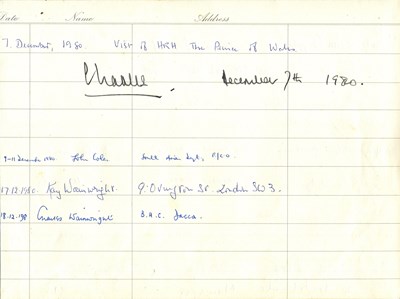 Date Name Address
7. December, 1980 Visit of HRH The Prince of Wales
Charles December 7th 1980.
9-11 December 1980 John Cole South Asia Dept, F.C.O.
17.12.1980. Kay Wainwright. 9. Ovington St. London SW3.
18.12.198 Charles Wainwright B.H.C. Dacca.